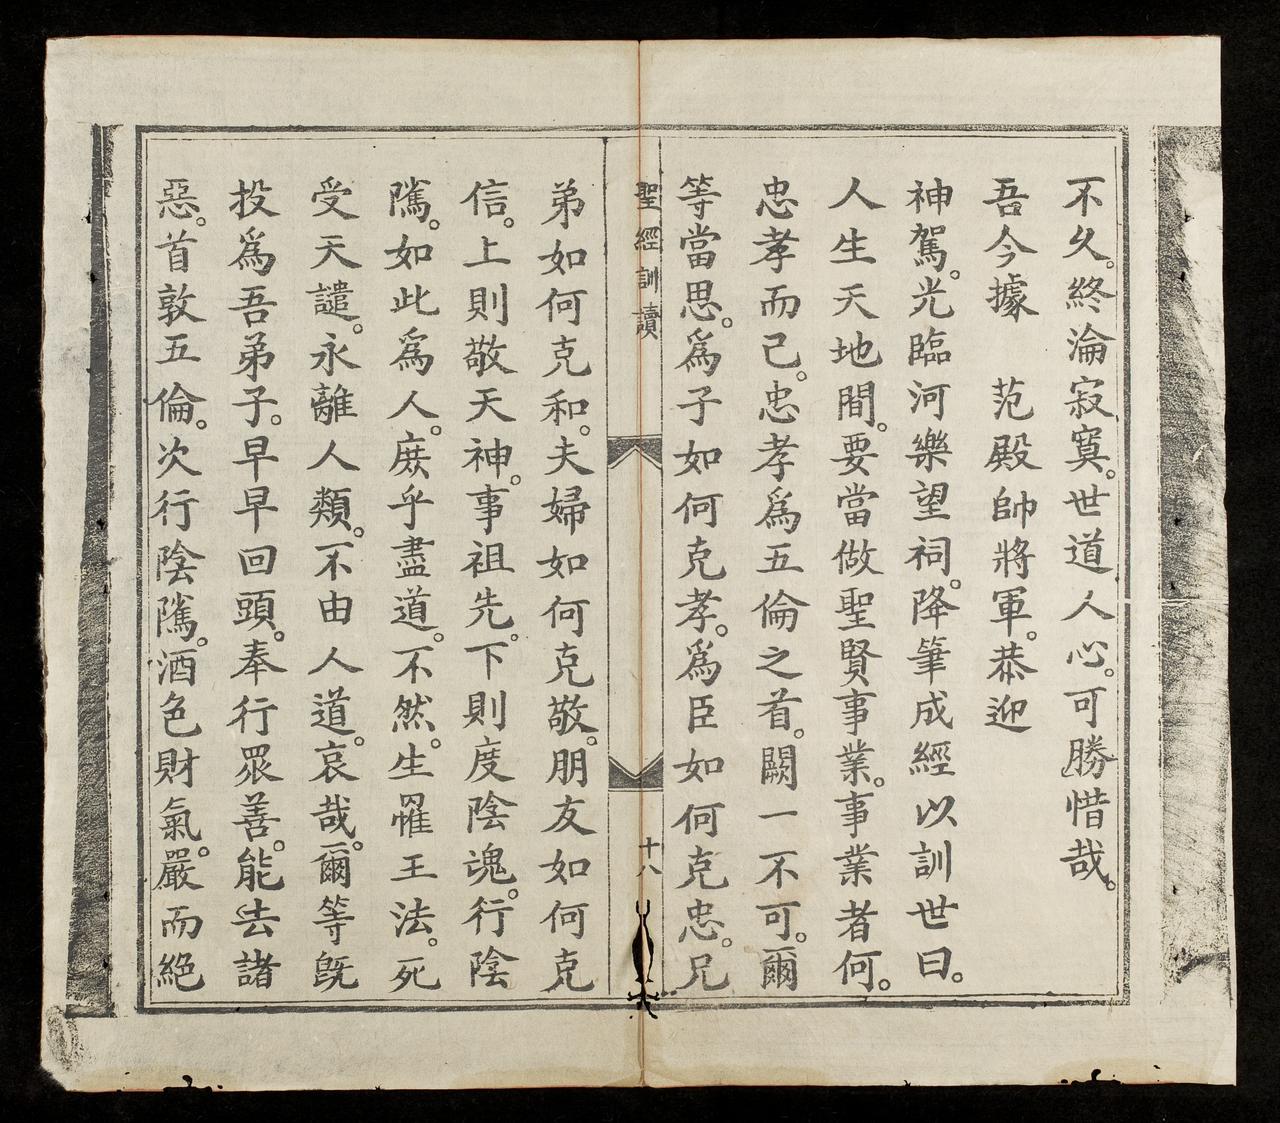 不久。終淪寂寞。世道人心。可勝惜哉。
吾今據　范殿帥將軍。恭迎
神駕。光臨河樂望祠。降筆成經以訓世曰。
人生天地間。要當做聖賢事業。事業者何。
忠孝而已。忠孝爲五倫之首。闕一不可。爾
等當思。爲子如何克孝。爲臣如何克忠。兄
聖經訓讀
十八
弟如何克和。夫婦如何克敬。朋友如何克
信。上則敬天神。事祖先。下則度陰魂。行陰
隲。如此爲人。庶乎盡道。不然。生罹王法。死
受天譴。永離人類。不由人道。哀哉。爾等旣
投爲吾弟子。早早回頭。奉行眾善。能去諸
惡。首敦五倫。次行陰隲。酒色財氣。嚴而絕